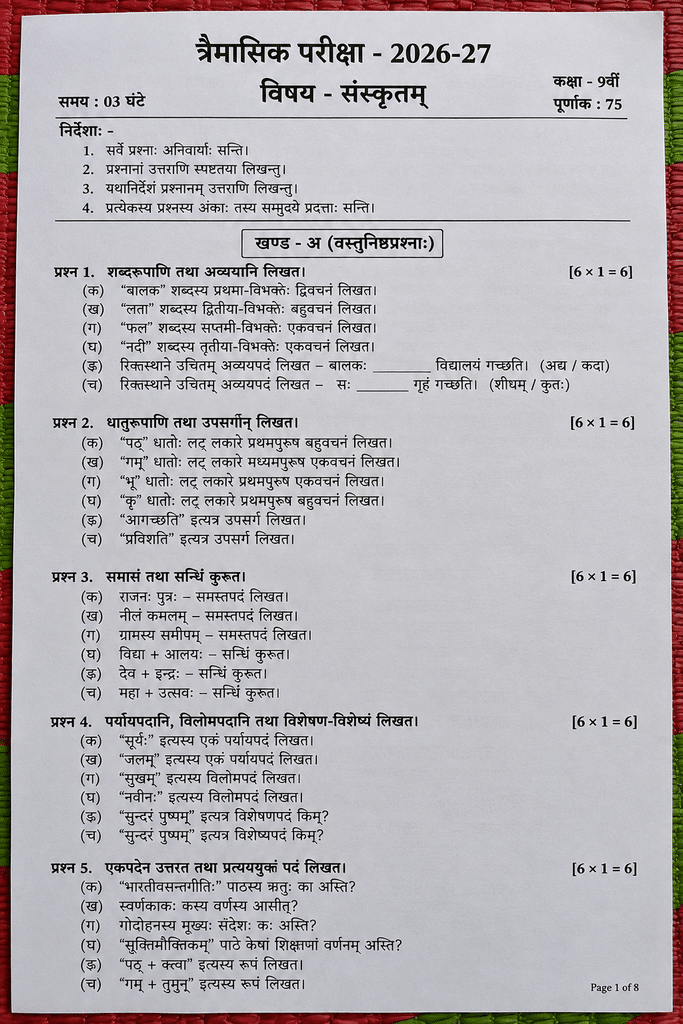 त्रैमासिक परीक्षा - 2026-27
विषय - संस्कृतम्
कक्षा - 9वीं
समय : 03 घंटे
पूर्णांक : 75
निर्देशाः -
1. सर्वे प्रश्नाः अनिवार्याः सन्ति।
2. प्रश्नानां उत्तराणि स्पष्टतया लिखन्तु।
3. यथानिर्देशं प्रश्नानम् उत्तराणि लिखन्तु।
4. प्रत्येकस्य प्रश्नस्य अंकाः तस्य सम्मुदये प्रदत्ताः सन्ति।
खण्ड - अ (वस्तुनिष्ठप्रश्नाः)
प्रश्न 1. शब्दरूपाणि तथा अव्ययानि लिखत। [6 × 1 = 6]
(क) “बालक” शब्दस्य प्रथमा-विभक्तेः द्विवचनं लिखत।
(ख) “लता” शब्दस्य द्वितीया-विभक्तेः बहुवचनं लिखत।
(ग) “फल” शब्दस्य सप्तमी-विभक्तेः एकवचनं लिखत।
(घ) “नदी” शब्दस्य तृतीया-विभक्तेः एकवचनं लिखत।
(ङ) रिक्तस्थाने उचितम् अव्ययपदं लिखत – बालकः ________ विद्यालयं गच्छति। (अद्य / कदा)
(च) रिक्तस्थाने उचितम् अव्ययपदं लिखत – सः _______ गृहं गच्छति। (शीघम् / कुतः)
प्रश्न 2. धातुरूपाणि तथा उपसर्गान् लिखत। [6 × 1 = 6]
(क) “पठ्” धातोः लट् लकारे प्रथमपुरूष बहुवचनं लिखत।
(ख) “गम्” धातोः लट् लकारे मध्यमपुरूष एकवचनं लिखत।
(ग) “भू” धातोः लट् लकारे प्रथमपुरुष एकवचनं लिखत।
(घ) “कृ” धातोः लट् लकारे प्रथमपुरूष बहुवचनं लिखत।
(ङ) “आगच्छति” इत्यत्र उपसर्ग लिखत।
(च) “प्रविशति” इत्यत्र उपसर्ग लिखत।
प्रश्न 3. समासं तथा सन्धिं कुरूत। [6 × 1 = 6]
(क) राजनः पुत्रः – समस्तपदं लिखत।
(ख) नीलं कमलम् – समस्तपदं लिखत।
(ग) ग्रामस्य समीपम् – समस्तपदं लिखत।
(घ) विद्या + आलयः – सन्धिं कुरूत।
(ङ) देव + इन्द्रः – सन्धिं कुरूत।
(च) महा + उत्सवः – सन्धिं कुरूत।
प्रश्न 4. पर्यायपदानि, विलोमपदानि तथा विशेषण-विशेष्यं लिखत। [6 × 1 = 6]
(क) “सूर्यः” इत्यस्य एकं पर्यायपदं लिखत।
(ख) “जलम्” इत्यस्य एकं पर्यायपदं लिखत।
(ग) “सुखम्” इत्यस्य विलोमपदं लिखत।
(घ) “नवीनः” इत्यस्य विलोमपदं लिखत।
(ङ) “सुन्दरं पुष्पम्” इत्यत्र विशेषणपदं किम्?
(च) “सुन्दरं पुष्पम्” इत्यत्र विशेष्यपदं किम्?
प्रश्न 5. एकपदेन उत्तरत तथा प्रत्यययुक्तं पदं लिखत। [6 × 1 = 6]
(क) “भारतीवसन्तगीतिः” पाठस्य ऋतुः का अस्ति?
(ख) स्वर्णकाकः कस्य वर्णस्य आसीत्?
(ग) गोदोहनस्य मूख्यः संदेशः कः अस्ति?
(घ) “सूक्तिमौक्तिकम्” पाठे केषां शिक्षाणां वर्णनम् अस्ति?
(ङ) “पठ् + क्त्वा” इत्यस्य रूपं लिखत।
(च) “गम् + तुमुन्” इत्यस्य रूपं लिखत।
Page 1 of 8